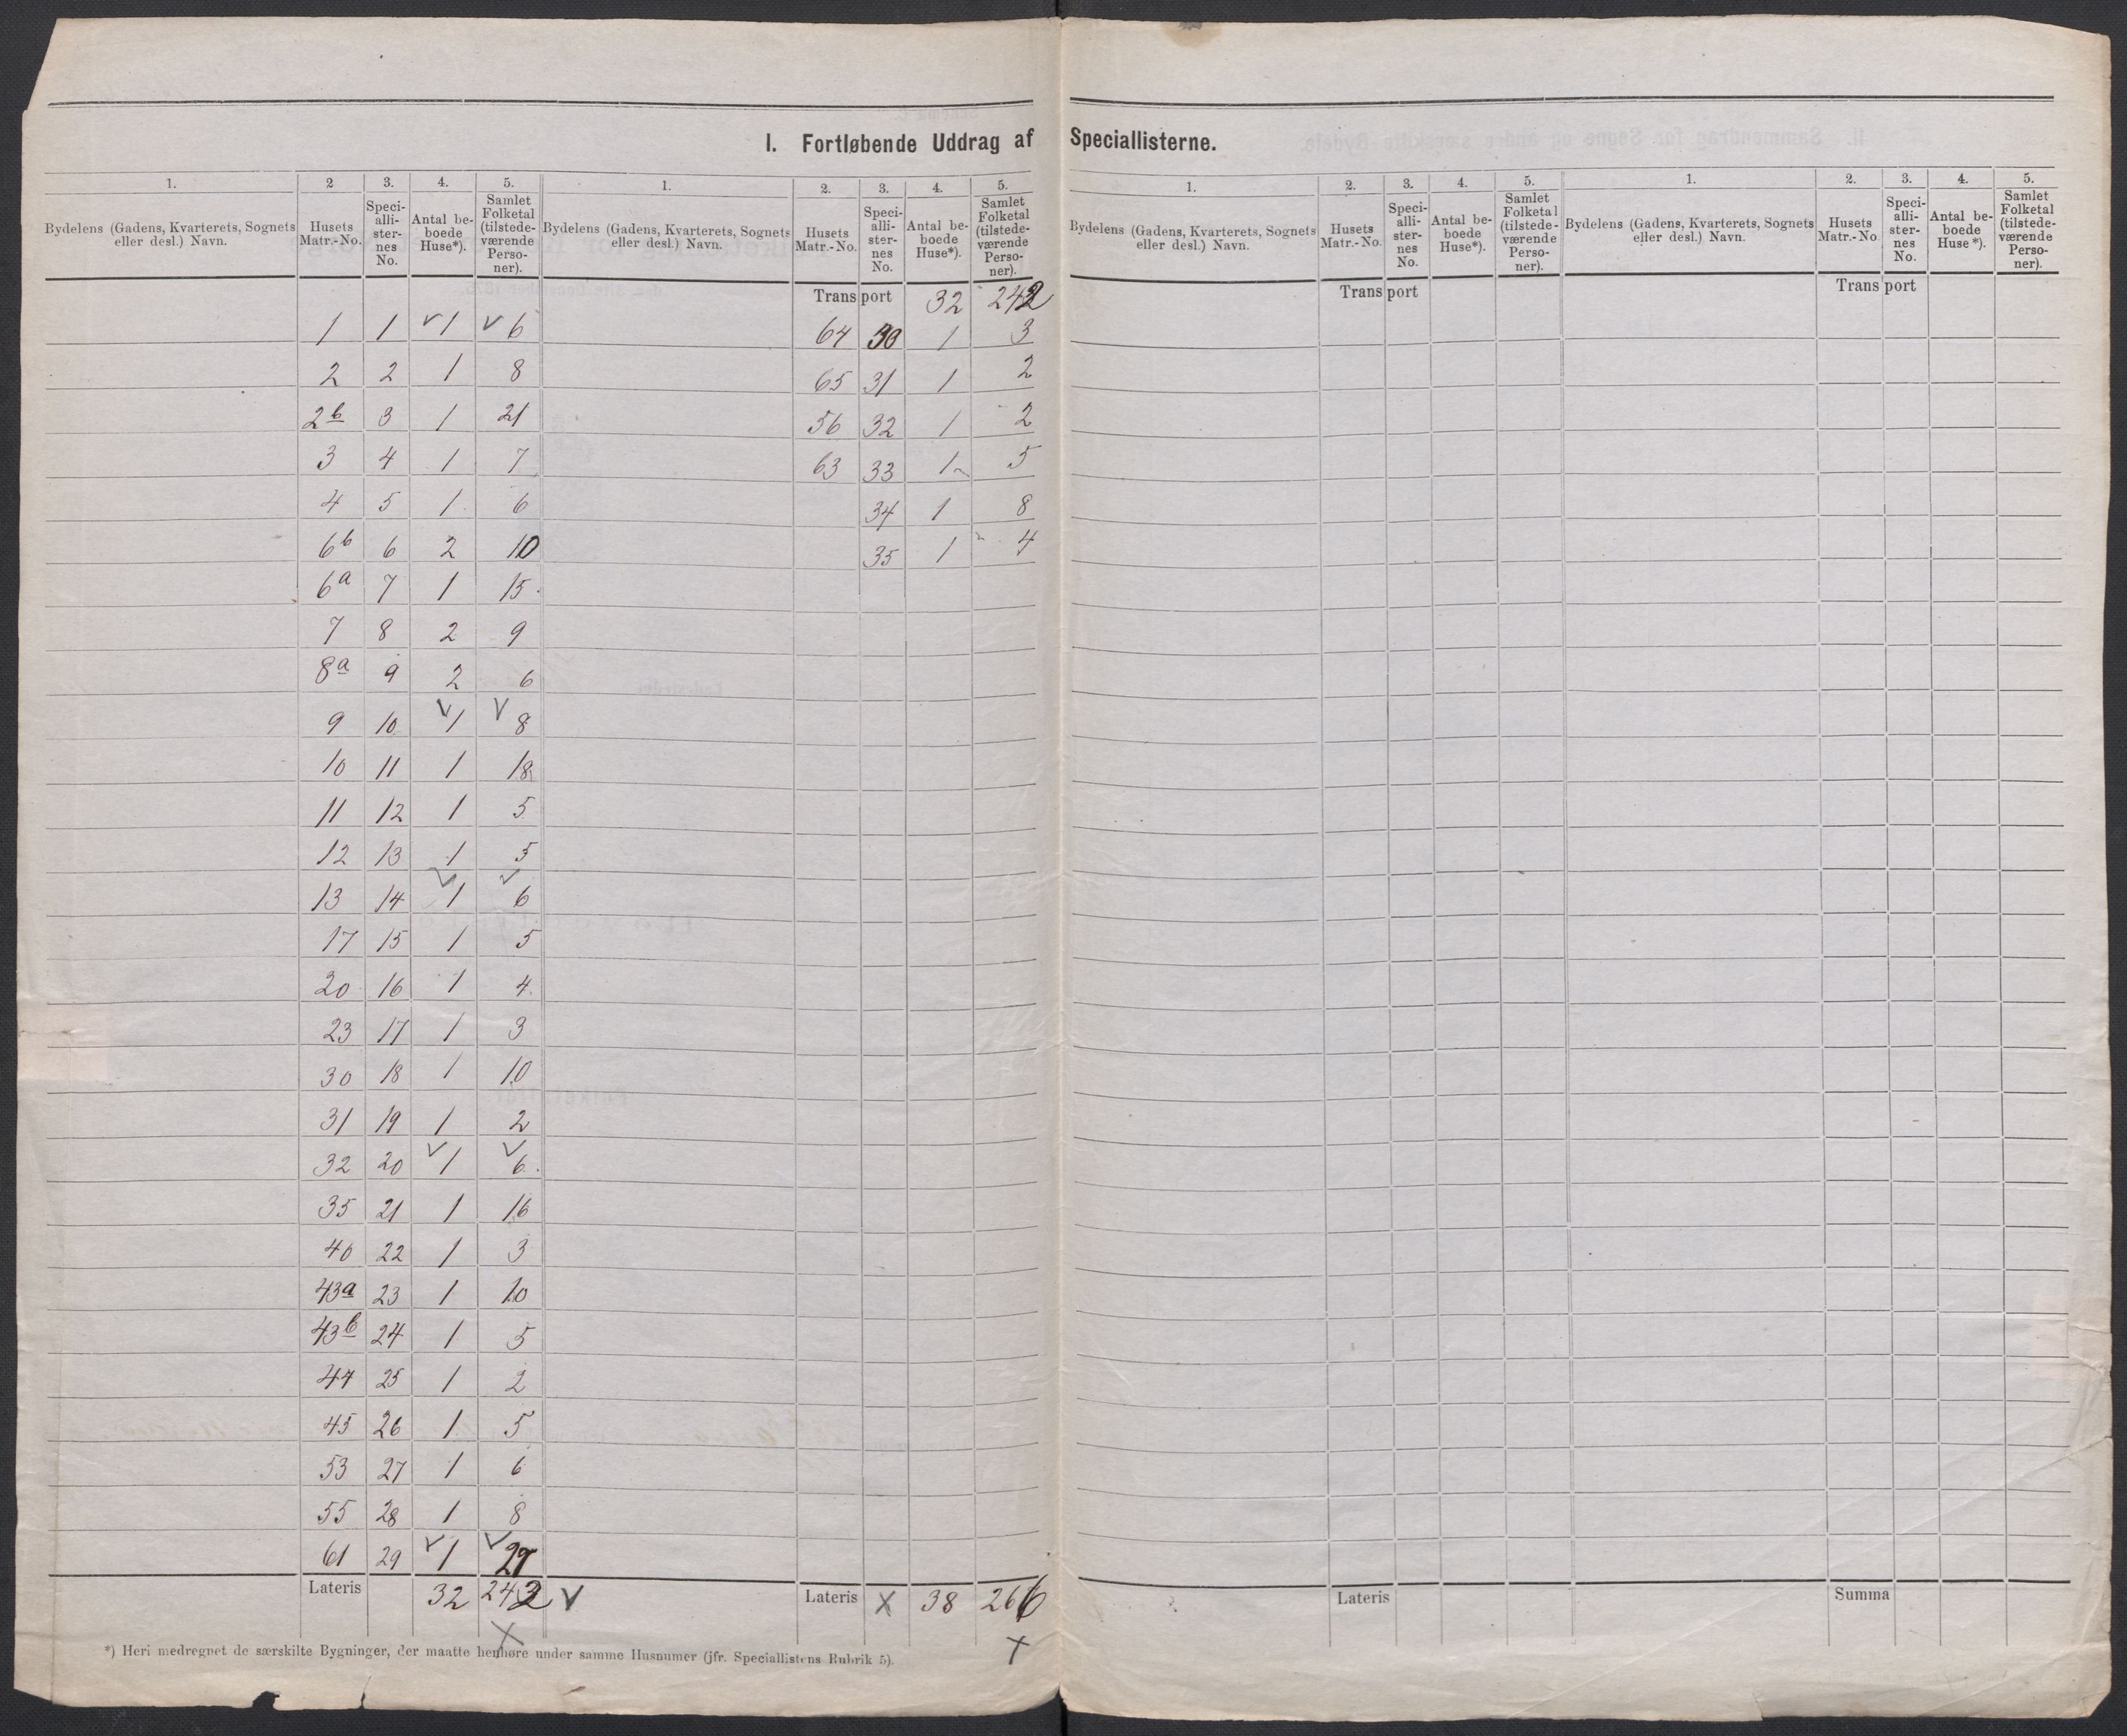 I. Fortløbende Uddrag af Speciallisterne.
1. 2 3. 4. 5.
Bydelens (Gadens, Kvarterets, Sognets eller desl.) Navn. Husets Matr.-No. Speciallisternes No. Antal beboede Huse*). Samlet Folketal (tilstedeværende Personer).
1 1 1 6
2 2 1 8
2b 3 1 21
3 4 1 7
4 5 1 6
6b 6 2 10
6a 7 1 15
7 8 2 9
8a 9 2 6
9 10 1 8
10 11 1 18
11 12 1 5
12 13 1 5
13 14 1 6
17 15 1 5
20 16 1 4
23 17 1 3
30 18 1 10
31 19 1 2
32 20 1 6
35 21 1 16
40 22 1 3
43a 23 1 10
43b 24 1 5
44 25 1 2
45 26 1 5
53 27 1 6
55 28 1 8
61 29 1
Lateris 32 242
1. 2. 3. 4. 5.
Bydelens (Gadens, Kvarterets, Sognets eller desl.) Navn. Husets Matr.-No. Speciallisternes No. Antal beboede Huse*). Samlet Folketal (tilstedeværende Personer).
Transport 32 242
64 30 1 3
65 31 1 2
56 32 1 2
63 33 1 5
34 1 8
35 1 4
Lateris X 38 266
*) Heri medregnet de særskilte Bygninger, der maatte henhøre under samme Husnumer (jfr. Speciallistens Rubrik 5).
1. 2. 3. 4. 5.
Bydelens (Gadens, Kvarterets, Sognets eller desl.) Navn. Husets Matr.-No. Speciallisternes No. Antal beboede Huse*). Samlet Folketal (tilstedeværende Personer).
Transport
Lateris
1. 2. 3. 4. 5.
Bydelens (Gadens, Kvarterets, Sognets eller desl.) Navn. Husets Matr.-No Speciallisternes No. Antal beboede Huse*). Samlet Folketal (tilstedeværende Personer).
Transport
Summa